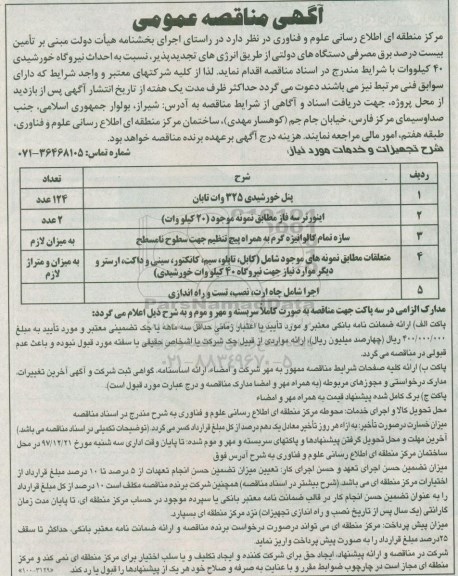 آگهی مناقصه عمومی
مرکز منطقه ای اطلاع رسانی علوم و فناوری در نظر دارد در راستای اجرای بخشنامه هیأت دولت مبنی بر تأمین
بیست درصد برق مصرفی دستگاه های دولتی از طریق انرژی های تجدیدپذیر، نسبت به احداث نیروگاه خورشیدی
۴۰ کیلووات با شرایط مندرج در اسناد مناقصه اقدام نماید. لذا از کلیه شرکتهای معتبر و واجد شرایط که دارای
سوابق فنی مرتبط نیز می باشند دعوت می گردد حداکثر ظرف مدت یک هفته از تاریخ انتشار آگهی پس از بازدید
از محل پروژه، جهت دریافت اسناد و آگاهی از شرایط مناقصه به آدرس: شیراز، بولوار جمهوری اسلامی، جنب
صداوسیمای مرکز فارس، خیابان جام جم (کوهسار مهدی)، ساختمان مرکز منطقه ای اطلاع رسانی علوم و فناوری،
طبقه هفتم، امور مالی مراجعه نمایند. هزینه درج آگهی برعهده برنده مناقصه خواهد بود.
شرح تجهیزات و خدمات مورد نیاز: شماره تماس: ۳۶۴۶۸۱۰۵-۰۷۱
ردیف شرح تعداد
۱ پنل خورشیدی ۳۲۵ وات تابان ۱۲۴ عدد
۲ اینورتر سه فاز مطابق نمونه موجود (۲۰ کیلو وات) ۲ عدد
۳ سازه تمام گالوانیزه گرم به همراه پیچ تنظیم جهت سطوح نامسطح به میزان لازم
۴ متعلقات مطابق نمونه های موجود شامل (کابل، تابلو، سیم، کانکتور، سینی و داکت، ارستر و به میزان و متراژ
دیگر موارد نیاز جهت نیروگاه ۴۰ کیلو وات خورشیدی) لازم
۵ اجرا شامل چاه ارت، نصب، تست و راه اندازی
مدارک الزامی در سه پاکت جهت مناقصه به صورت کاملاً سربسته و مهر و موم و به شرح ذیل اعلام می گردد:
پاکت الف) ارائه ضمانت نامه بانکی معتبر و مورد تأیید با اعتبار زمانی حداقل سه ماهه یا چک تضمینی معتبر و مورد تأیید به مبلغ
۴۰۰/۰۰۰/۰۰۰ ریال (چهارصد میلیون ریال) ارائه مواردی از قبیل چک شرکت یا اشخاص حقیقی یا سفته مورد قبول نبوده و باعث عدم
قبولی در مناقصه می گردد.
پاکت ب) ارائه کلیه صفحات شرایط مناقصه ممهور به مهر شرکت و امضاء، ارائه اساسنامه، گواهی ثبت شرکت و آگهی آخرین تغییرات،
مدارک درخواستی و مجوزهای مربوطه (به همراه مهر و امضا مدارک مناقصه و درج عبارت مورد قبول است).
پاکت ج) برگ کامل شده پیشنهاد قیمت به همراه مهر و امضاء
محل تحویل کالا و اجرای خدمات: محوطه مرکز منطقه ای اطلاع رسانی علوم و فناوری به شرح مندرج در اسناد مناقصه
میزان خسارت درصورت تأخیر: به ازاء هر روز تأخیر معادل یک دهم درصد از کل مبلغ قرارداد کسر می گردد. (توضیحات تکمیلی در اسناد مناقصه می باشد)
آخرین مهلت و محل تحویل گرفتن پیشنهادها و پاکتهای سربسته و مهر و موم شده: تا پایان وقت اداری سه شنبه مورخ ۹۷/۱۲/۲۱ در محل
ساختمان مرکز منطقه ای اطلاع رسانی علوم و فناوری به شرح آدرس فوق
میزان تضمین حسن اجرای تعهد و حسن اجرای کار: تعیین میزان تضمین حسن انجام تعهدات از ۵ درصد تا ۱۰ درصد مبلغ قرارداد از
اختیارات مرکز منطقه ای می باشد. (شرح بیشتر در اسناد مناقصه) همچنین شرکت برنده مناقصه مکلف است ۱۰ درصد از کل مبلغ قرارداد
را به عنوان تضمین حسن انجام کار در قالب ضمانت نامه معتبر بانکی یا سپرده موجود در حساب مرکز منطقه ای، تا پایان مدت زمان
گارانتی (یک سال پس از تاریخ نصب و راه اندازی تجهیزات) نزد مرکز منطقه ای بسپارد.
میزان پیش پرداخت: مرکز منطقه ای می تواند درصورت درخواست برنده مناقصه و ارائه ضمانت نامه معتبر بانکی، حداکثر تا سقف
۲۵درصد مبلغ قرارداد را به صورت پیش پرداخت واریز نماید.
شرکت در مناقصه و ارائه پیشنهاد، ایجاد حق برای شرکت کننده و ایجاد تکلیف و یا سلب اختیار برای مرکز منطقه ای نمی کند و مرکز
منطقه ای مجاز است در چارچوب ضوابط مقرر و با عنایت به صرفه و صلاح خود هر یک از پیشنهادها را قبول یا رد کند.
۰۲۱-۸۸۳۴۹۶۷۰-۵